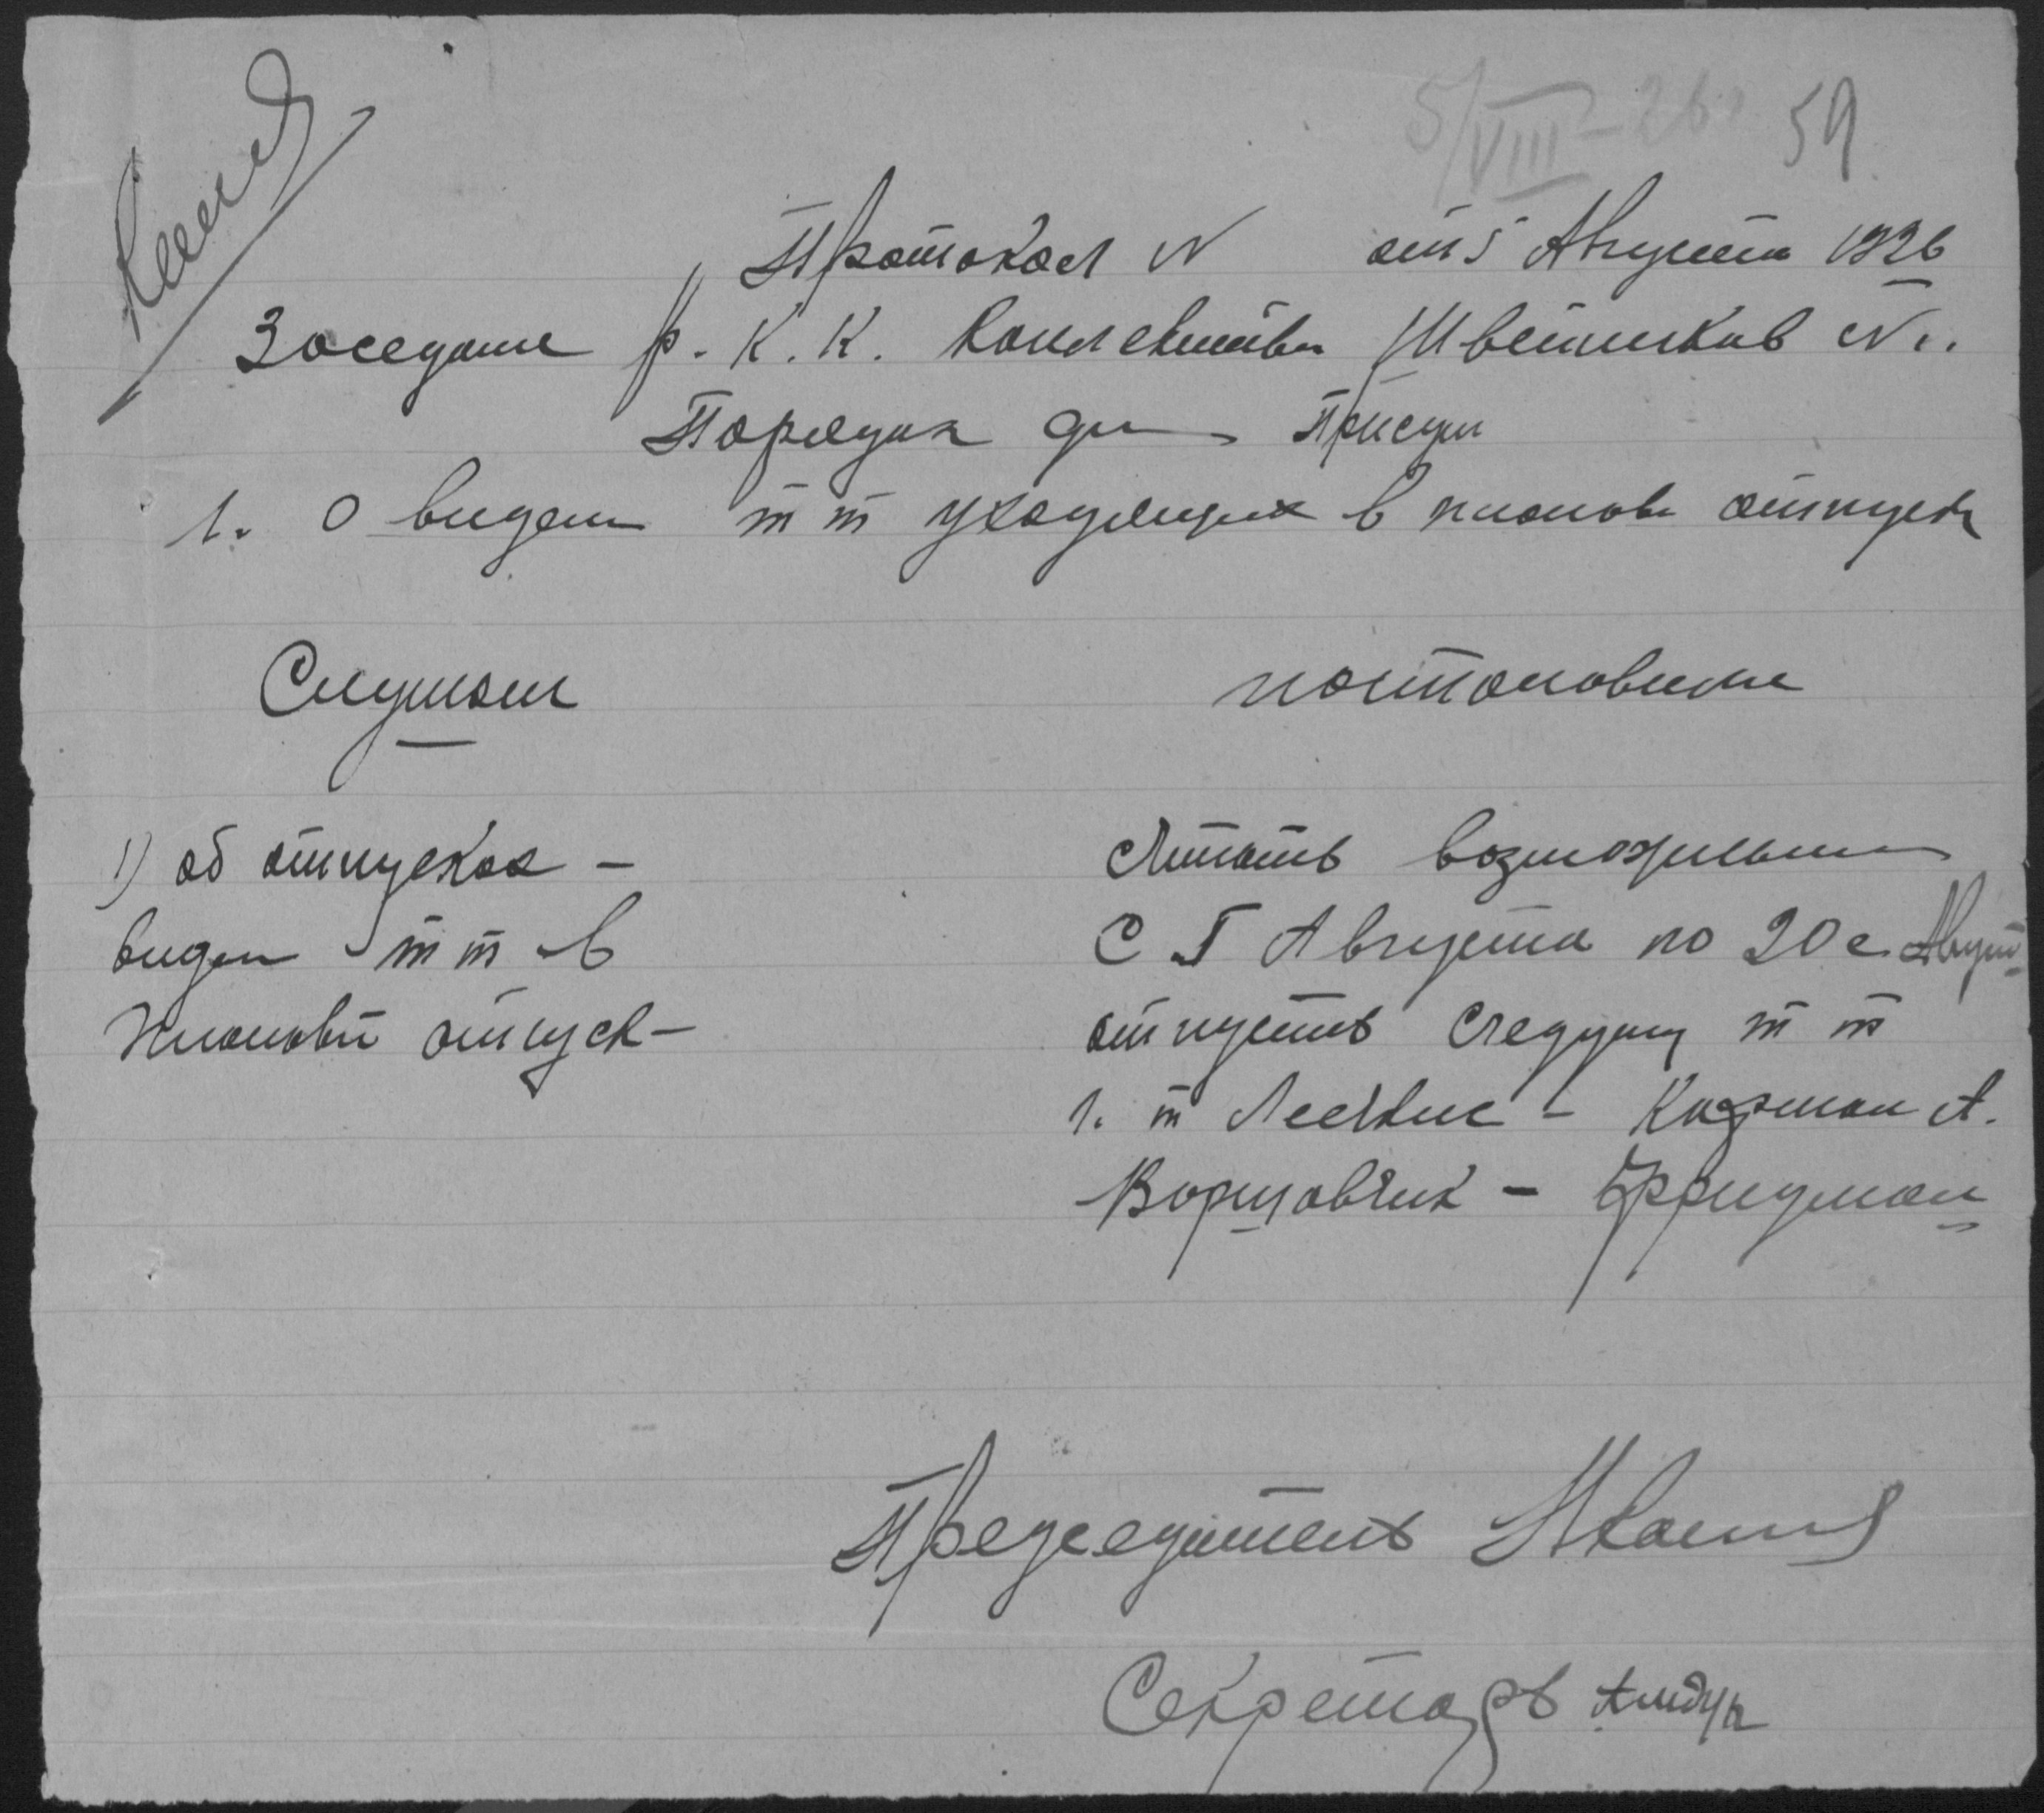 5/VIII-26 59
Протокол N от 5 Августа 1926
Заседание Р.К.К. Коллектива Швейников N1.
Порядок дн
1. О видаи тт уходящих в планов отпуск
Слушали
постановили
1) об отпусках -
видаи тт в
плановй отпуск -
Считать возможным
с Августа по 20 е Август
отпустить следующ тт
1. т - Кацман А.
Ворцовчик - Фридман
Председатель
Секретарь